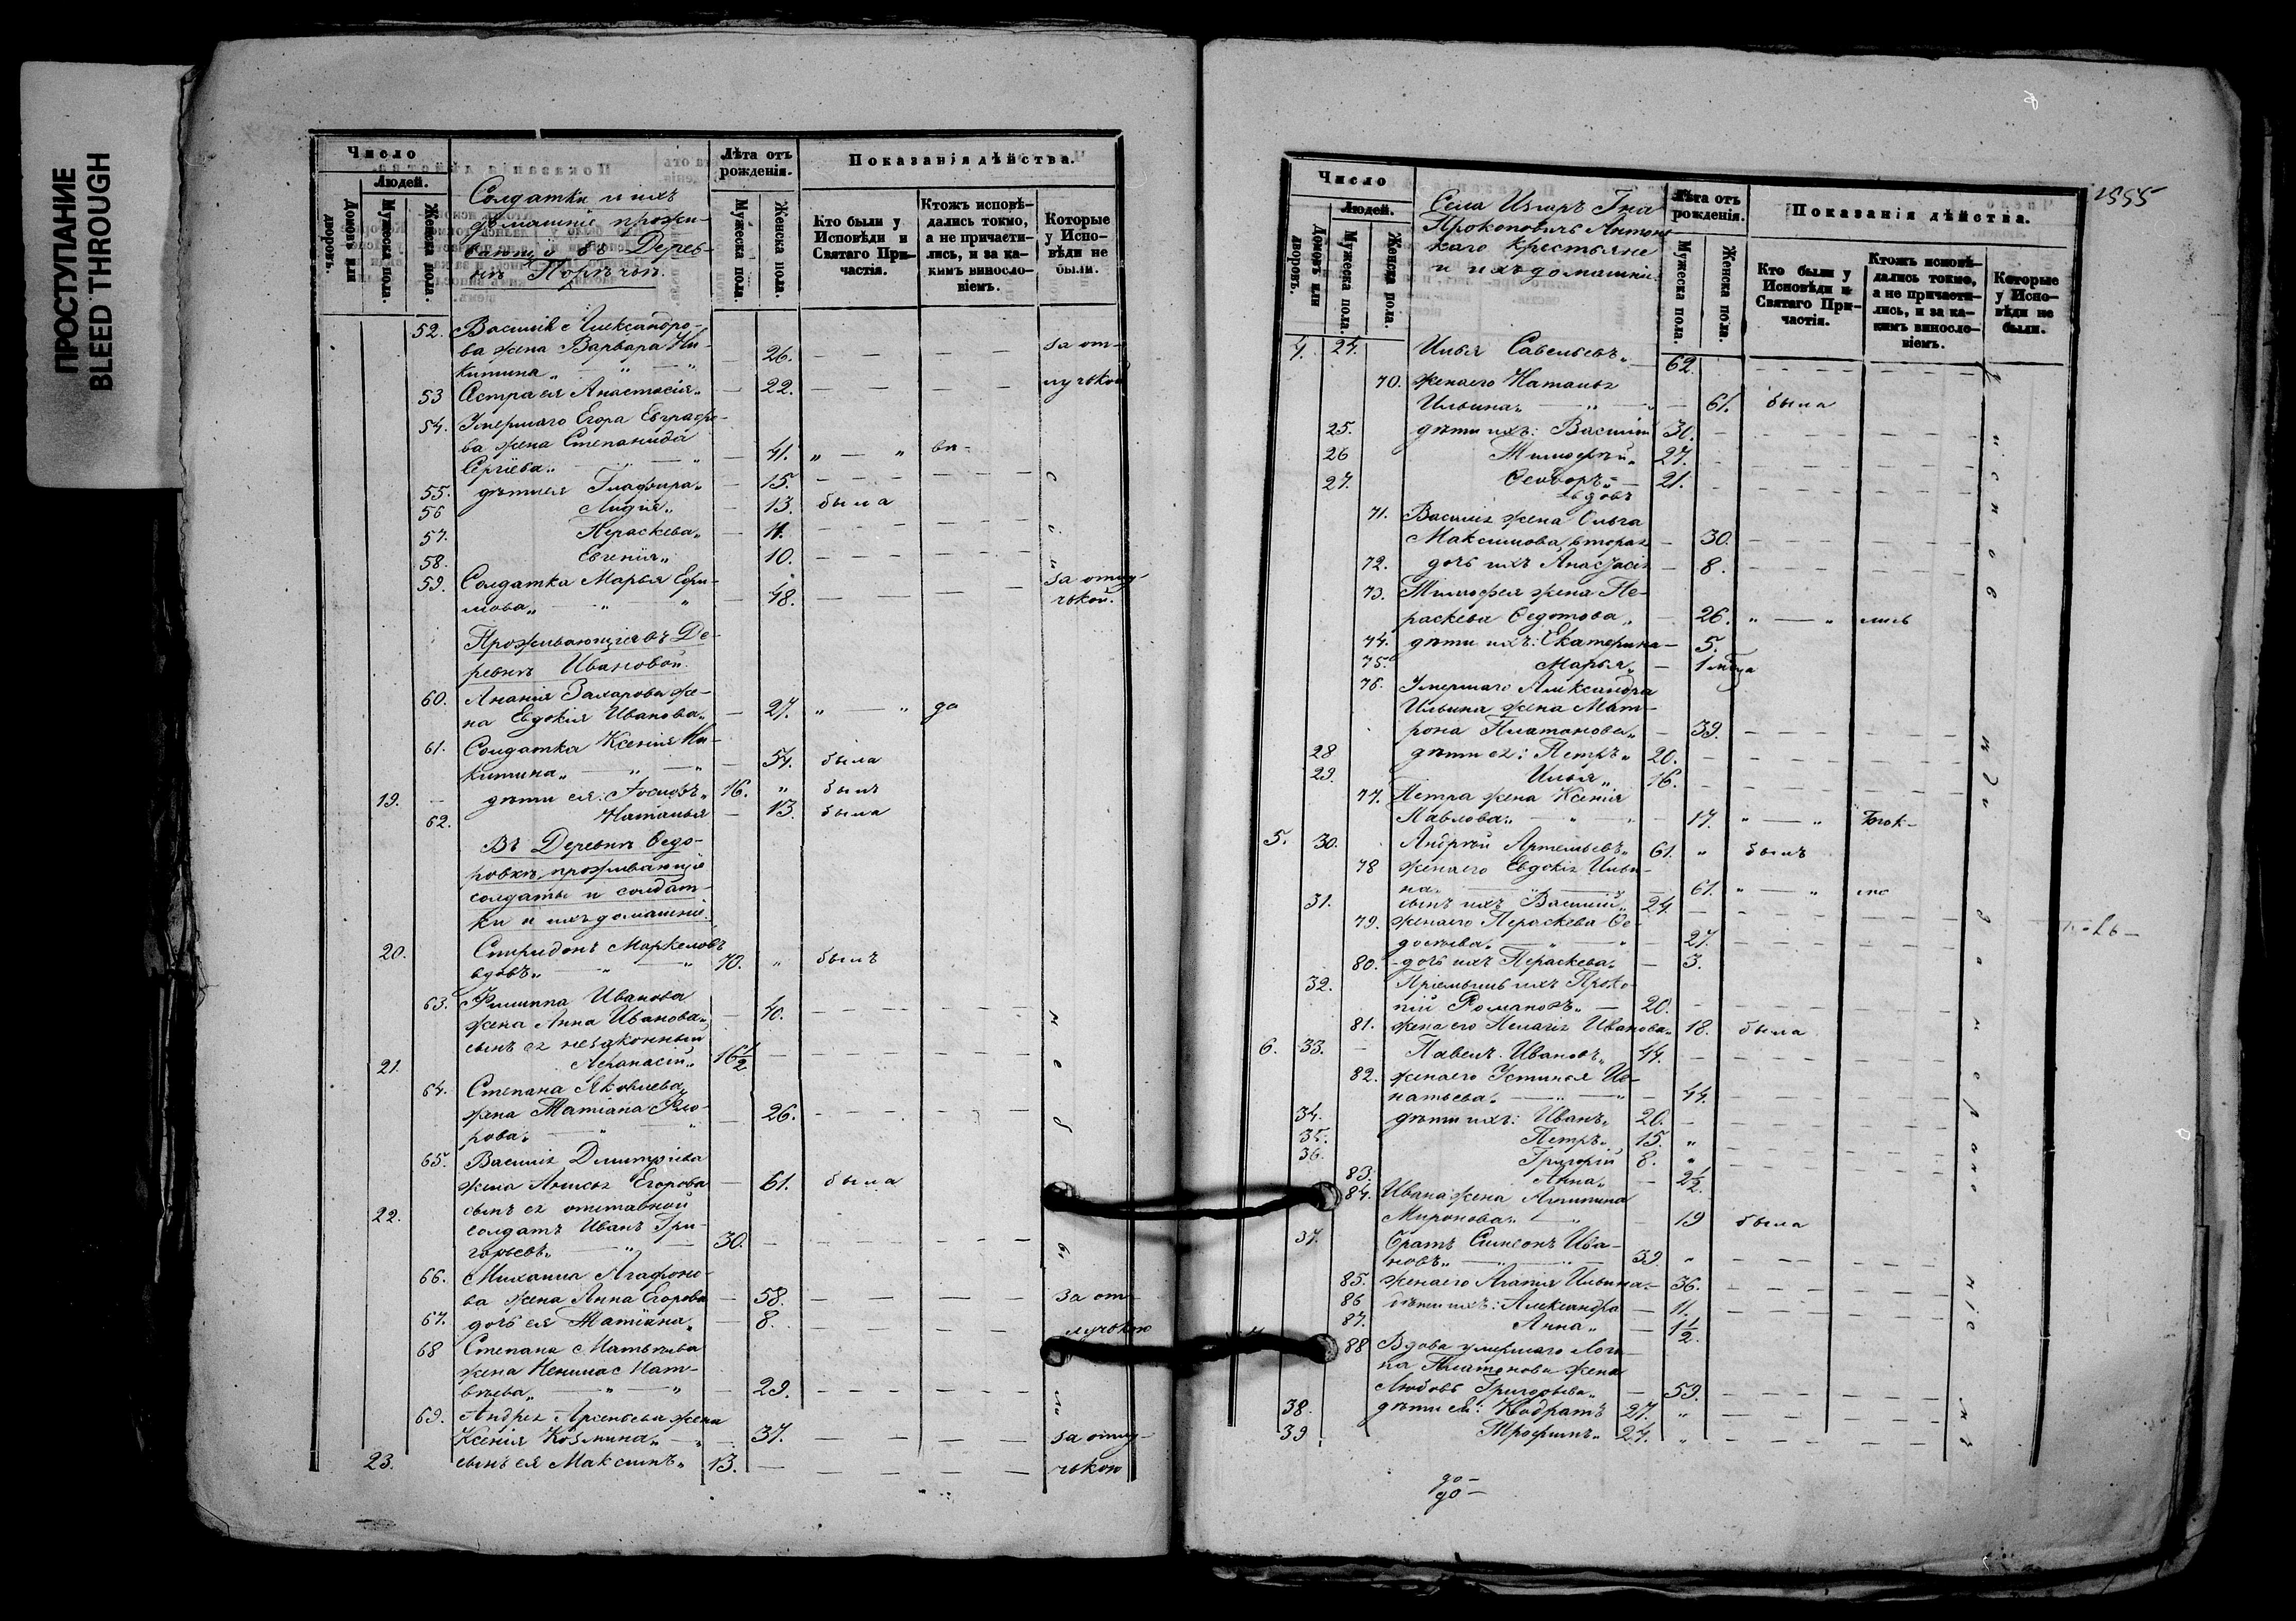 ПРОСТУПАНИЕ
BLEED THROUGH
Число
Людей.
Домовъ или дворовъ.
Мужеска пола.
Женска пола.
Солдатки и ихъ
домашніе прожи-
вающіе въ Дерев-
нѣ Порѣчьѣ.
Лѣта отъ рожденія.
Мужеска пола.
Женска пола.
Показанія дѣйства.
Кто были у Исповѣди и Святаго Причастія.
Ктожъ исповѣдались токмо, а не причастились, и за какимъ винословіемъ.
Которые у Исповѣди не были.
52. Василія Александро-
ва жена Варвара Ни- — 26. за от-
китина „
53 Сестра ея Анастасія „ — 22. лучкой
54. Умершаго Егора Евграфо-
ва жена Степанида
Сергіева „ — 41. „ — „
55. дѣти ея Глафира „ — 15.
56 Лидія „ — 13. была
57. Пераскева „ — 11.
58. Евгенія „ 10.
59. Солдатка Марья Ефи- за отлу-
мова „ — 48. чкой.
Проживающія въ Де-
ревнѣ Ивановой
60. Ананія Захарова же-
на Евдокія Иванова „ — 27. „ — „ до
61. Солдатка Ксенія Ни-
китина „ — 54. была
19. дѣти ея: Іосифъ „ 16. „ былъ
62. Наталья — 13. была
Въ Деревнѣ Ѳедо-
ровкѣ проживающіе
солдаты и солдат-
ки и ихъ домашніе.
20. Спиридонъ Маркеловъ
вдовъ „ 70. „ былъ
63. Филиппа Иванова
жена Анна Иванова „ — 40.
сынъ ея незаконный
21. Аѳанасій „ 16½
64. Степана Яковлева
жена Татіана Фло- — 26.
рова „
65. Василія Димитріева
жена Анисья Егорова — 61. была
22. сынъ ея отставной
солдатъ Иванъ Гри-
горьевъ „ 30.
66. Михаила Агафоно-
ва жена Анна Егорова — 58. за от-
67. дочь ея Татіана „ — 8. лучкою
68 Степана Матвѣева
жена Ненила Мат-
вѣева „ — 29.
69. Андрея Арсеньева жена
Ксенія Козмина „ — 37. за отлу-
23. сынъ ея Максимъ „ 13. — чкою
1555
Число
Людей.
Домовъ или дворовъ.
Мужеска пола.
Женска пола.
Села Изваръ Гна
Прокоповичъ Антонс-
каго крестьяне
и ихъ домашніе.
Лѣта отъ рожденія.
Мужеска пола.
Женска пола.
Показанія дѣйства.
Кто были у Исповѣди и Святаго Причастія.
Ктожъ исповѣдались токмо, а не причастились, и за какимъ винословіемъ.
Которые у Исповѣди не были.
4. 24. Илья Савельевъ „ 62.
70. жена его Наталья
Ильина „ — 61. была
25. дѣти ихъ: Василій 30.
26 Тимофѣй „ 27.
27. Ѳеодоръ „ 21.
вдовъ
71. Василія жена Ольга
Максимова, вторая — 30.
72. дочь ихъ Анастасія — 8.
73. Тимофея жена Пе-
раскева Ѳедотова „ — 26. „ — „
74. дѣти ихъ: Екатерина — 5.
75. Марья „ — 1 мѣсяца
76. Умершаго Александра
Ильина жена Мат-
рона Платонова „ — 39.
28 дѣти ея: Петръ „ 20.
29. Илья „ 16.
77. Петра жена Ксенія
Павлова „ — 17. „ — „
5. 30. Андрей Артемьевъ „ 61. „ былъ
78 жена его Евдокія Ильи-
на „ — 61. „ — „
31. сынъ ихъ Василій „ 24.
79. жена его Пераскева Ѳе-
досѣева „ — 27.
80. дочь ихъ Пераскева „ — 3.
32. Пріемышъ ихъ Проко-
пій Романовъ „ — 20.
81. жена его Пелагія Иванова „ 18. была
6. 33. Павелъ Ивановъ „ 44.
82. жена его Устинья Иг-
натьева „ — 44.
34. дѣти ихъ: Иванъ „ 20.
35. Петръ „ 15. „
36. Григорій 8. „
83. Анна „ — 2½
84. Ивана жена Агрипина
Миронова „ — 19 была
37. братъ Симеонъ Ива-
новъ „ 39. „
85. жена его Агапія Ильина — 36.
86 дѣти ихъ: Александра — 11.
87. Анна „ — 1½
88 Вдова умершаго
Платонова жена
Любовь Григорьева „ — 59.
38. дѣти ея: Кодратъ 27. „
39. Трофимъ „ 24. „
до —
до —